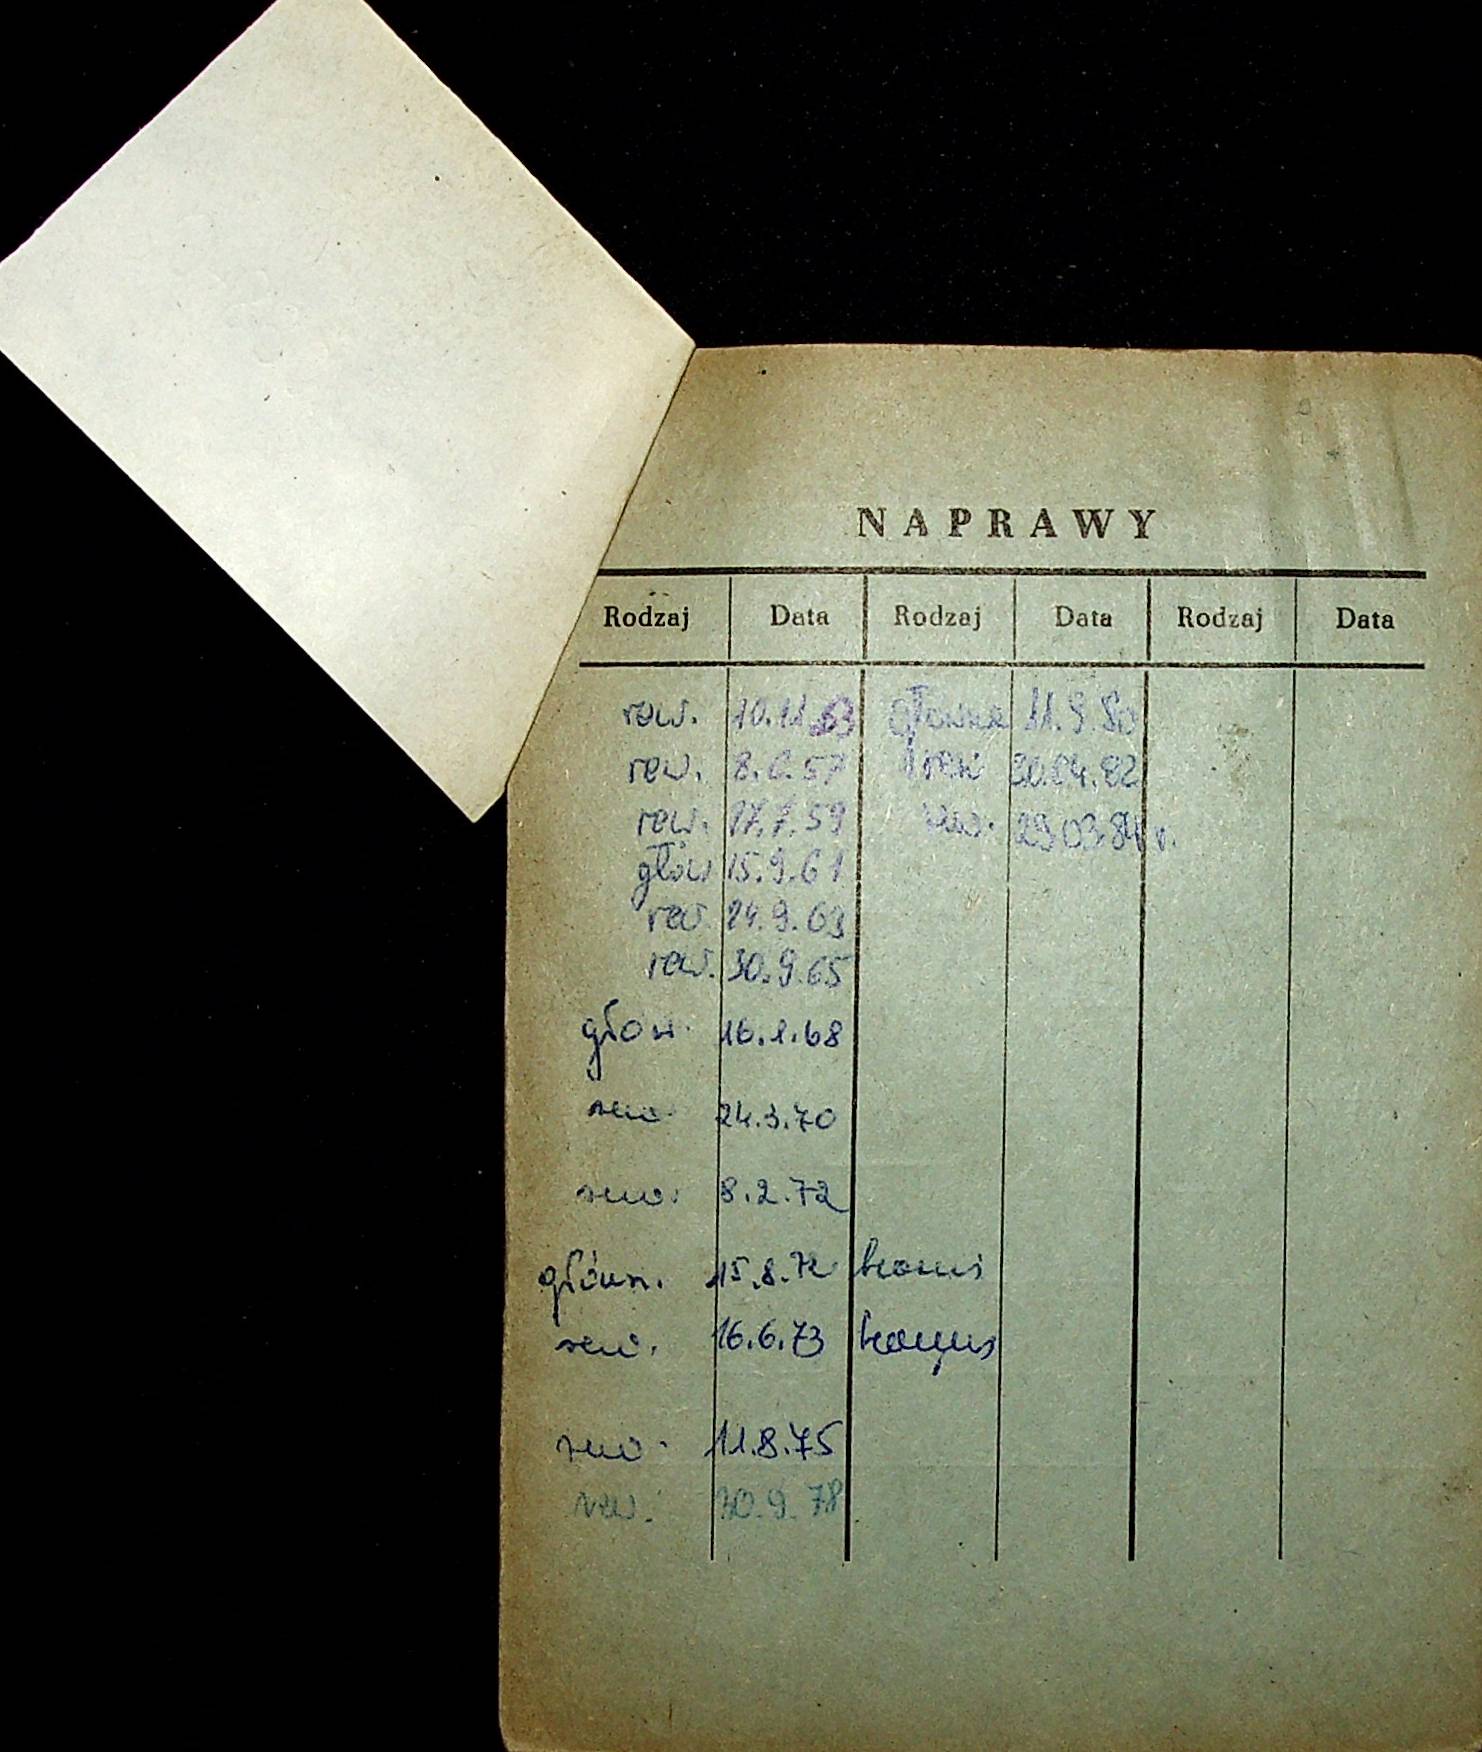 NAPRAWY
Rodzaj Data Rodzaj Data Rodzaj Data
rew. 10.11.63 główna 11.9.80
rew. 8.6.57 rew 30.04.82
rew. 17.7.59 rew. 29.03.84 r.
głów 15.9.61
rew. 24.9.63
rew. 30.9.65
głow. 16.1.68
rew. 24.3.70
rew. 8.2.72
główn. 15.8.72
rew. 16.6.73
rew. 11.8.75
rew. 30.9.78